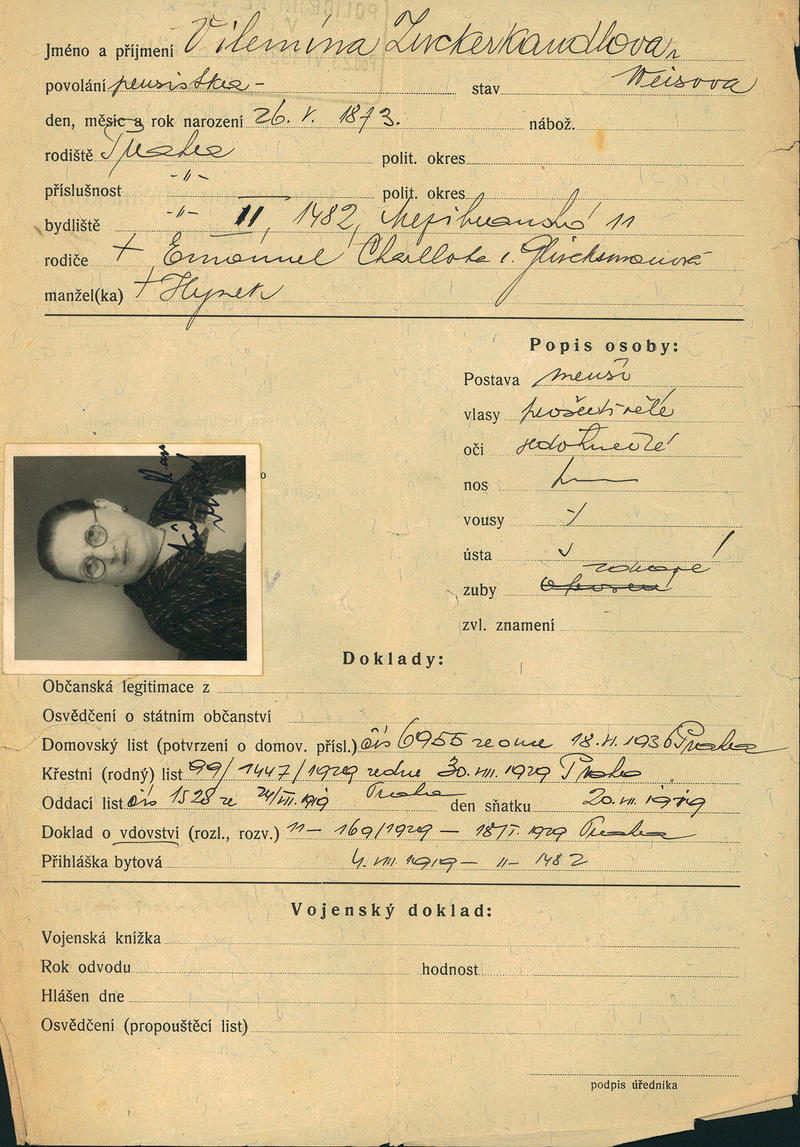 Jméno a příjmení Vilemína Zuckerkandlova r.
povolání pensistka - stav Weisova
den, měsíc a rok narození 26. V. 1873. nábož.
rodiště Praha polit. okres
příslušnost -"- polit. okres
bydliště -"- II, 1482, 11
rodiče + Emanuel Charllota r. Glücksmanová
manžel(ka) + Hynek
Popis osoby:
Postava menší
vlasy prošedivělé
oči šedohnědé
nos
vousy
ústa
zuby
zvl. znamení
Doklady:
Občanská legitimace z
Osvědčení o státním občanství
Domovský list (potvrzení o domov. přísl.) čís 6955 ze dne 18. VI. 1936 Praha
Křestní (rodný) list 99/1447/1929 ze dne 30. VIII. 1929 Praha
Oddací list čís 1528 ze 24/VII. 1919 Praha den sňatku 20. VII. 1919
Doklad o vdovství (rozl., rozv.) 11 - 169/1929 - 18/I. 1929 Praha
Přihláška bytová 4. VIII. 1919 - II - 1482
Vojenský doklad:
Vojenská knížka
Rok odvodu hodnost
Hlášen dne
Osvědčení (propouštěcí list)
podpis úředníka